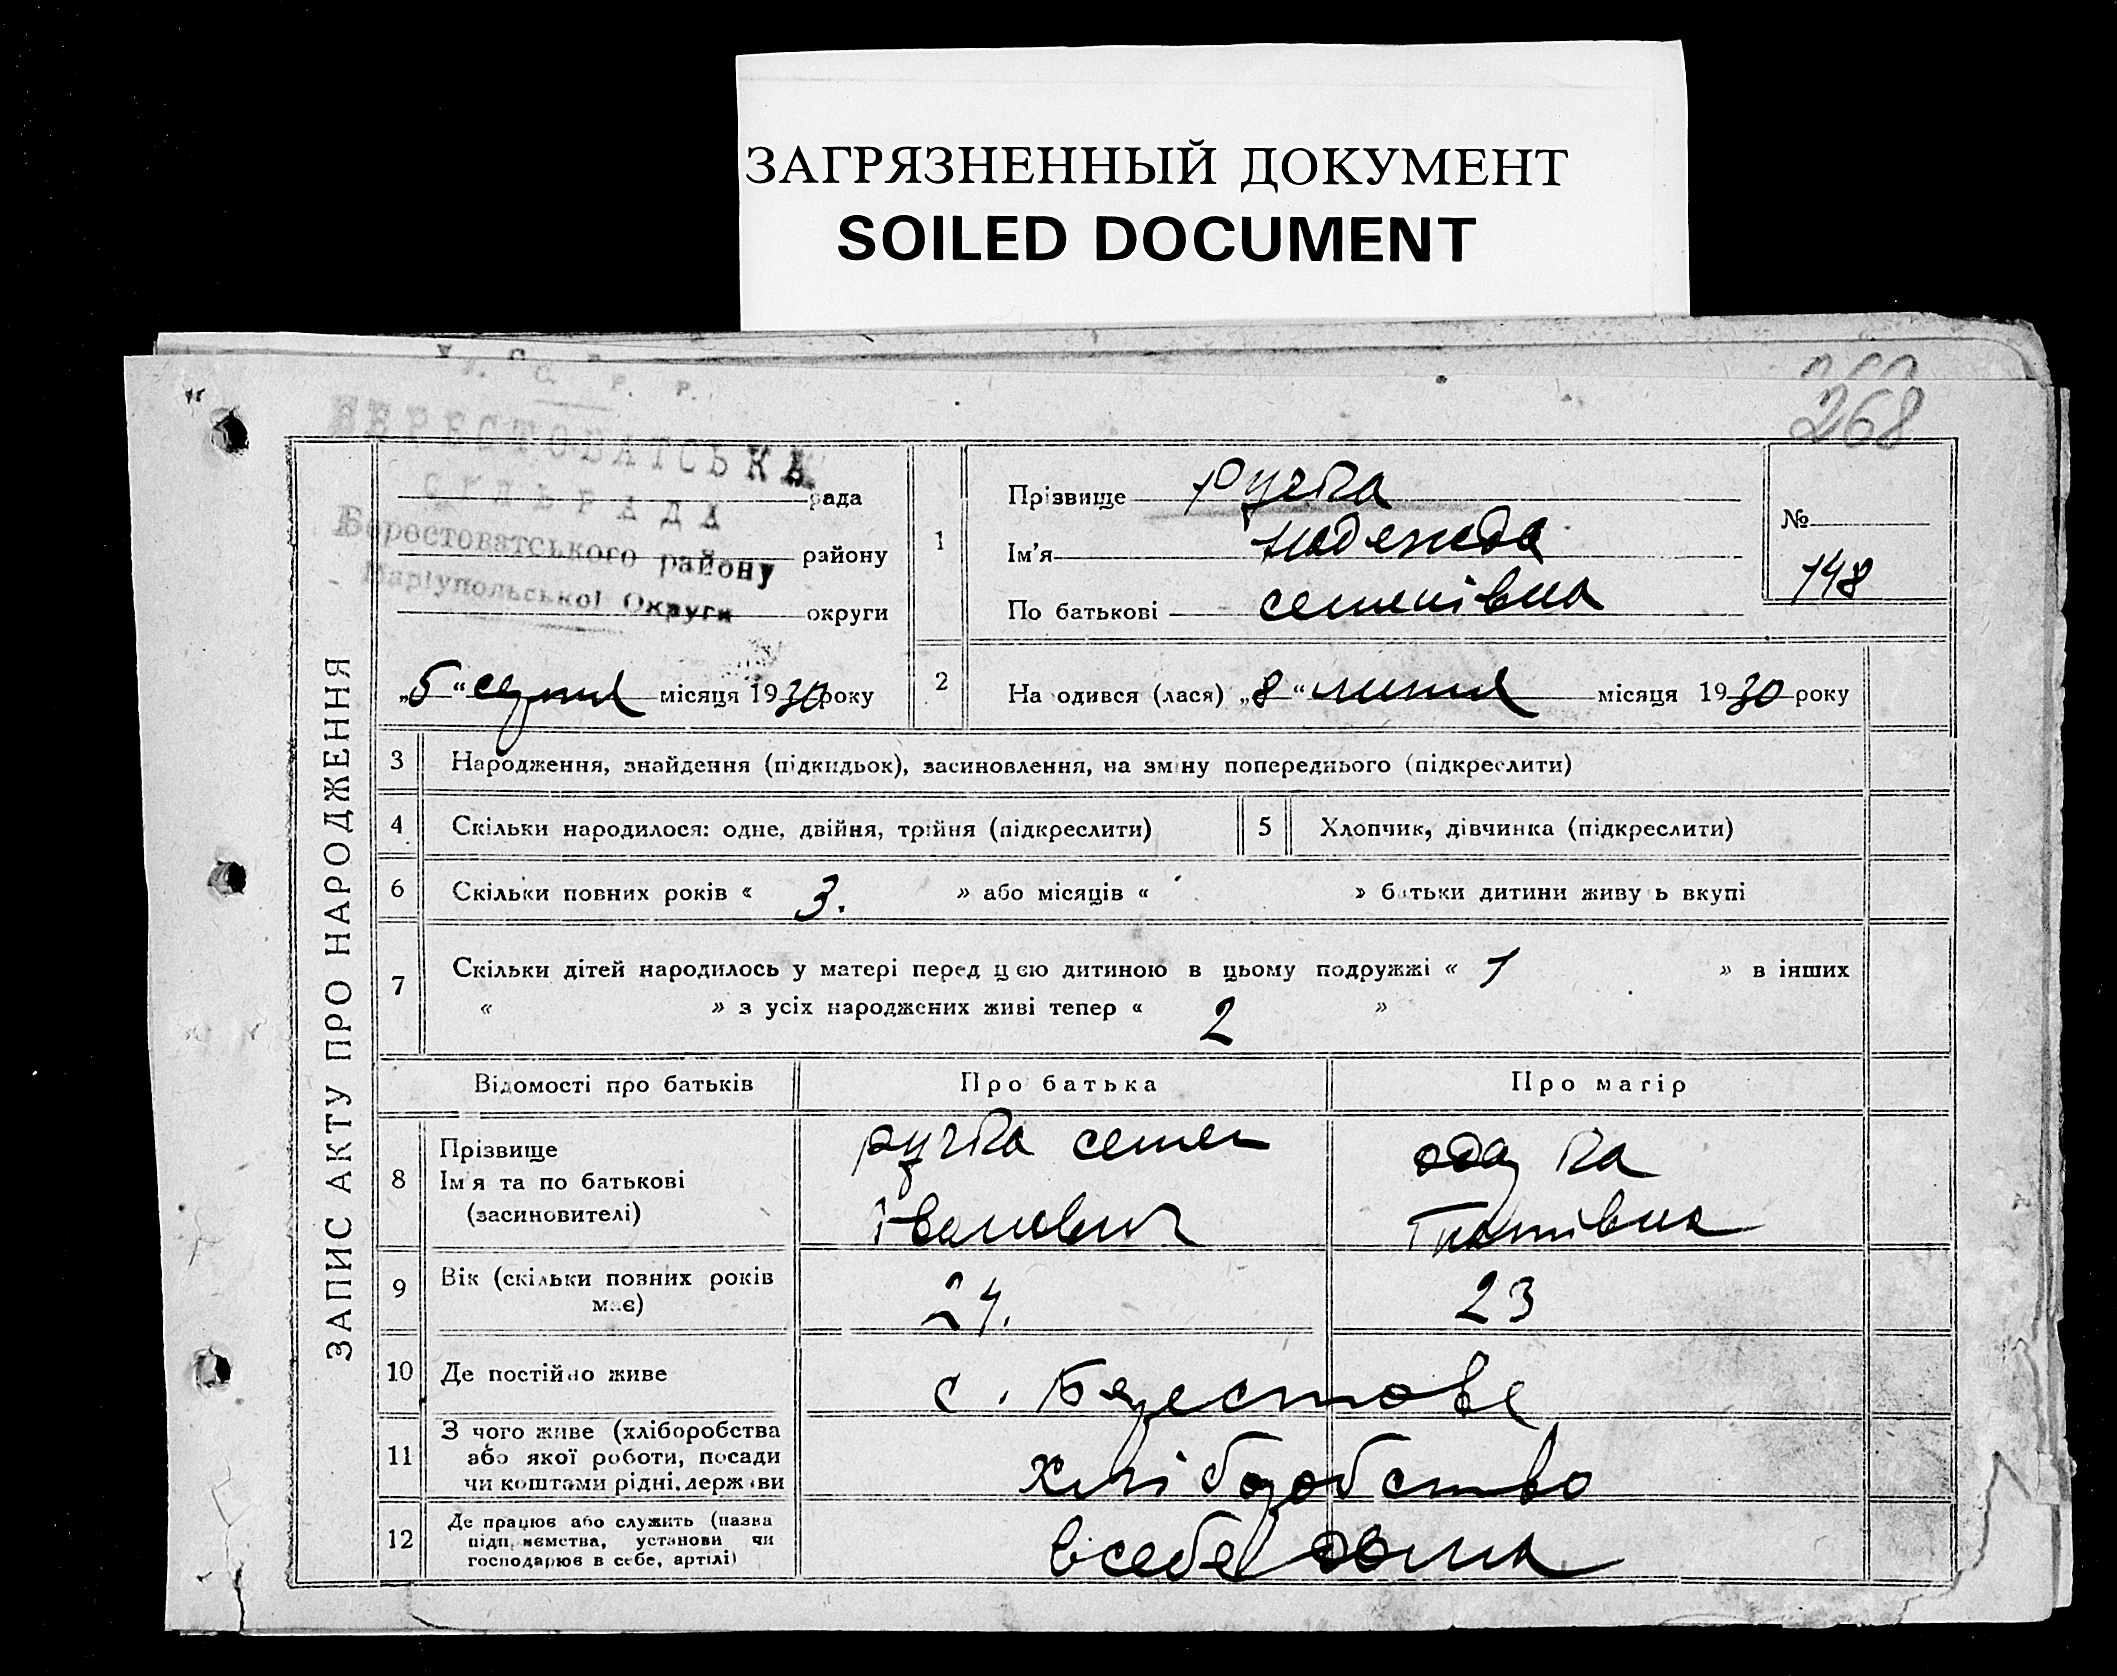 ЗАГРЯЗНЕННЫЙ ДОКУМЕНТ
SOILED DOCUMENT
268
У. С. Р. Р.
БЕРЕСТОВАТСЬКА
СІЛЬРАДА
Берестоватського району
Маріупольської Округи
рада
району
округи
„5“ серпня місяця 1930 року
ЗАПИС АКТУ ПРО НАРОДЖЕННЯ
1 Прізвище Ручка
Ім'я Надежда
По батькові Семенівна
№ 148
2 На одився (лася) „8“ липня місяця 1930 року
3 Народження, знайдення (підкидьок), засиновлення, на зміну попереднього (підкреслити)
4 Скільки народилося: одне, двійня, трійня (підкреслити) 5 Хлопчик, дівчинка (підкреслити)
6 Скільки повних років « 3. » або місяців « » батьки дитини живу ь вкупі
7 Скільки дітей народилось у матері перед цією дитиною в цьому подружжі « 1 » в інших
« » з усіх народжених живі тепер « 2 »
Відомості про батьків Про батька Про матір
8 Прізвище
Ім'я та по батькові
(засиновителі)
Ручка Семен
Іванович
Гнатівна
9 Вік (скільки повних років має) 24. 23
10 Де постійно живе с. Берестове
11 З чого живе (хліборобства
або якої роботи, посади
чи коштами рідні, держави
хліборобство
12 Де працює або служить (назва
підприємства, установи чи
господарює в себе, артілі)
в себе дома